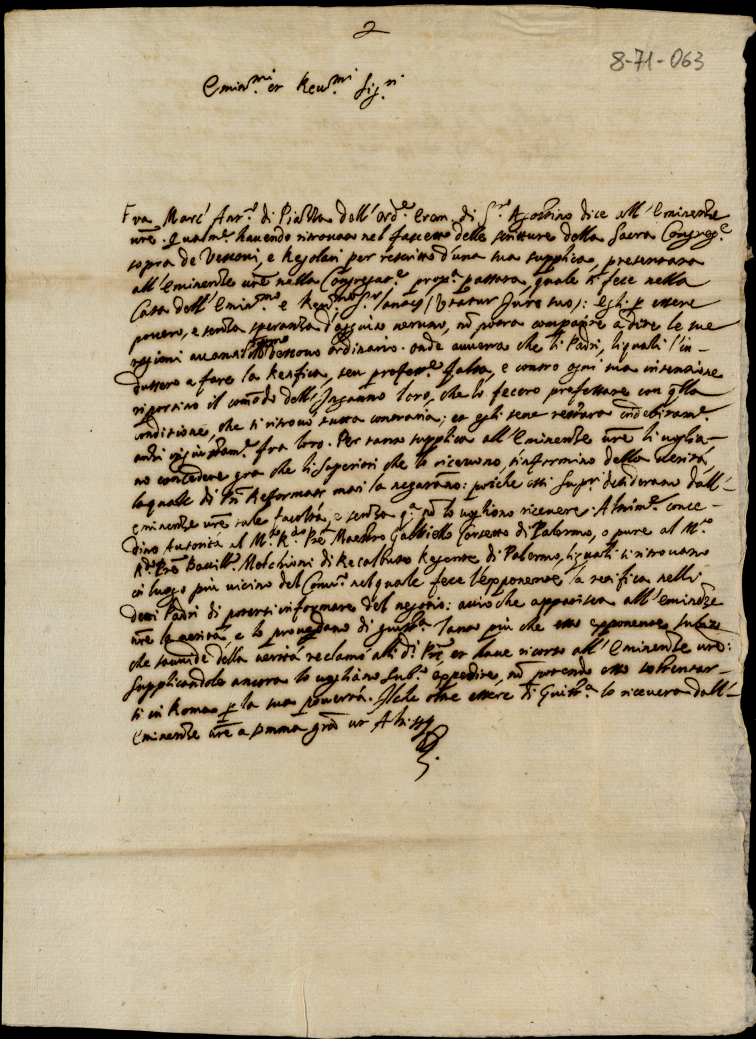 2
8-71-063
Emin.mi et Reu.mi Sig.ri
Fra Marc' Ant.o di Piazza dell' Ord.e Erem. di S.to Agostino dice all' Eminenze
vre. qualm.e hauendo ritrouato nel fascetto delle scritture della Sacra Congreg.e
sopra de Vescoui, e Regolari per rescritto d'una sua supplica, presentata
all' Eminenze vre nella Congregat.e pross.a passata, quale si fece nella
Casa dell' Emin.mo e Reu.mo S.r (Vtatur Jure suo): Egli p essere
pouero, e senza speranza d'aiuto neruno, nõ potrà comparire a dire le sue
ragioni auanti Vescouo ordinario. onde auuerrà che li Padri, li quali l'in-
dussero a fare la Ratifica, seu profess.e falsa, e contro ogni sua intenzione
riportino il comodo dell' Inganno loro, che lo fecero professare con qlla
conditione, che si ritrouò tutta contraria; et egli sene restarà indebitam.e
anzi ingiustam.e fra loro. Per tanto supplica all' Eminenze vre li voglia-
no concedere gra che li Superiori che lo riceuono, s'informino della uerità,
la quale di Pri Reformati mai la negaranno: poiche essi Supri desiderano dall'-
eminenze vre tale facoltà, e senza qsta nõ lo vogliono riceuere. Almen.e conce-
dino Autorità al M.to R.do Pre Maestro di Palermo, o pure al M.to
R.do Pre Bacill.o Melchioni di Recalbuto Regente di Palermo, li quali si ritrouano
in luogo più uicino del Conu.to nel quale fece l'esponente la ratifica nelli
detti Padri di potersi informare del negotio: acciò che apparisca all' Eminenze
vre la uerità, e lo prouedano di giust.a Tanto più che esso esponente subito
che s'auuide della uerità reclamò alli di Pri, et haue ricorso all' Eminenze vre:
supplicandole ancora lo vogliano sub.o espedire, nõ potendo esso sostentar-
si in Roma p la sua pouertà. Il che oltre essere di Giust.a lo riceuerà dall'-
Eminenze vre a somma gra ut Altiss.